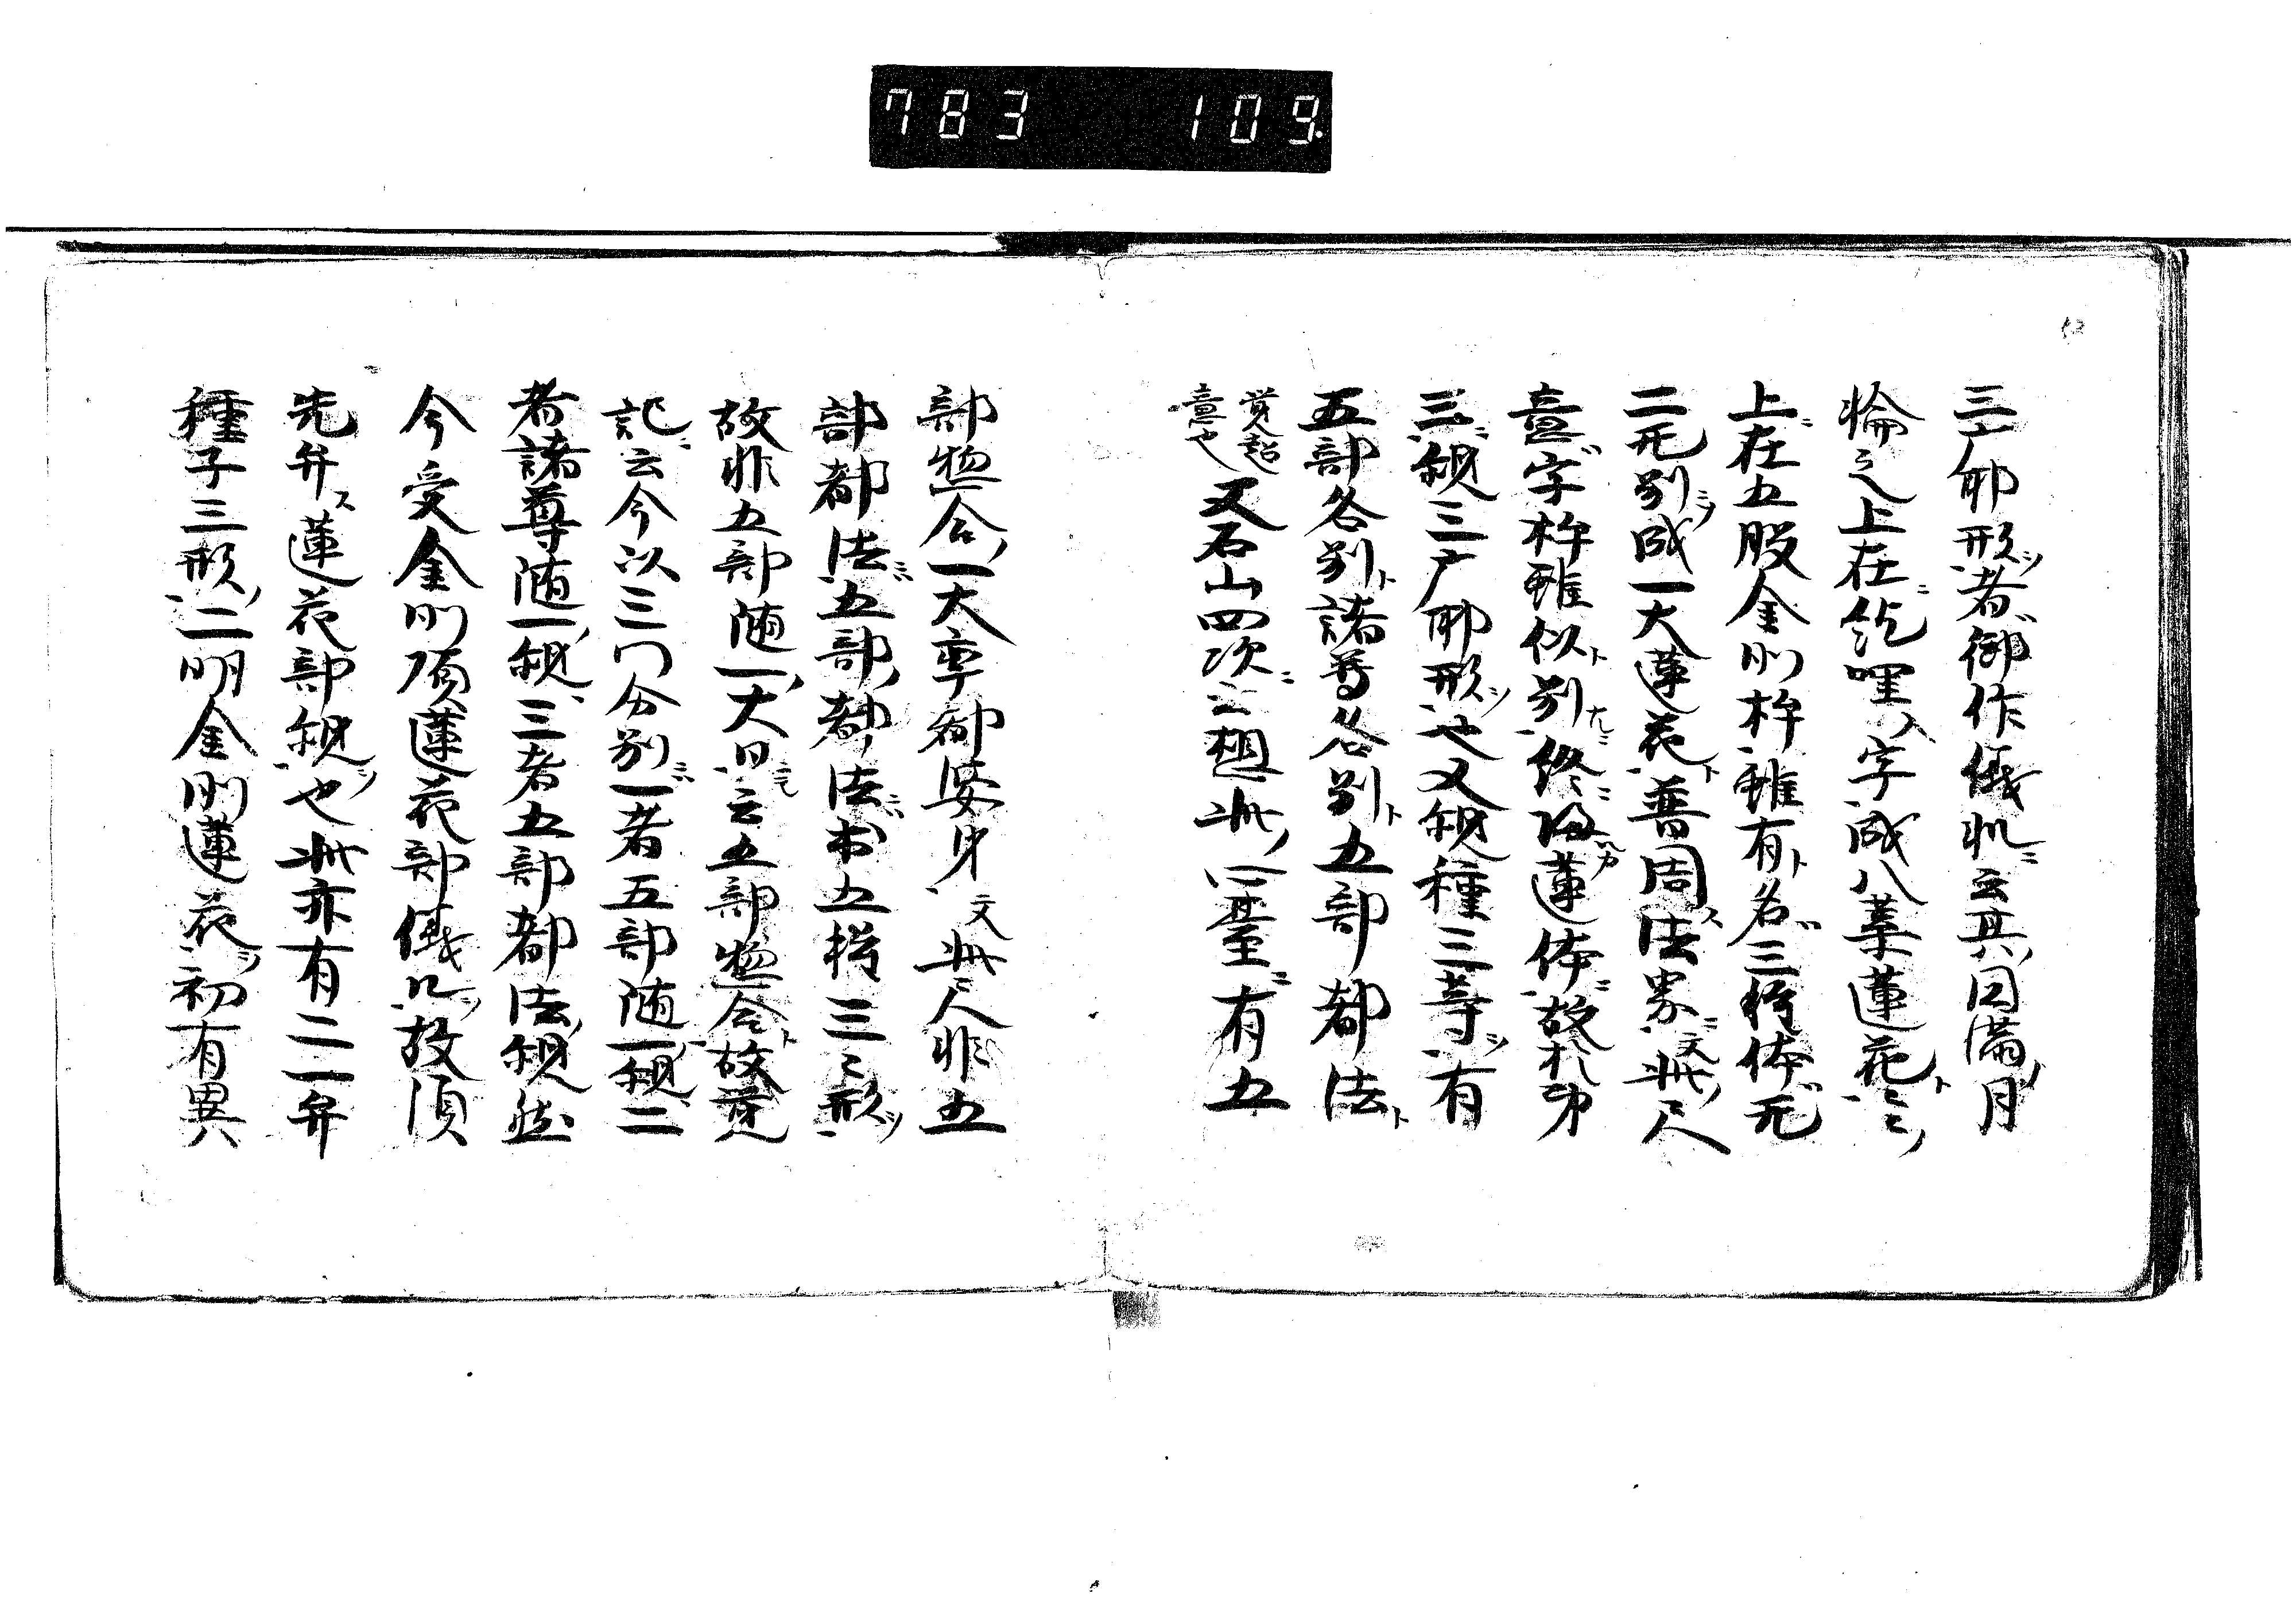 783 109
三广耶形者御作儀軌云其円満月
輪之上在紇哩字成八葉蓮花云々
上在五股金剛杵雖有名三種体无
二无別成一大蓮花普周法界文此尺
意字杵雖似別終帰蓮体故
三観三广耶形也又観種三等有
五部各別諸尊各別五部都法
覚超
意也
又石山四次云想此 有五
部惣合一大率都婆身文此尺非五
部都法五部都法 五種三々形
故非五部随一大日云五部惣合故覚
記云今以三门分別一者五部随一観二
者諸尊随一観三者五部都法観然
今受金剛頂蓮花部儀軌故須
先弁蓮花部観也此亦有二一弁
種子三形二明金剛蓮花初有異